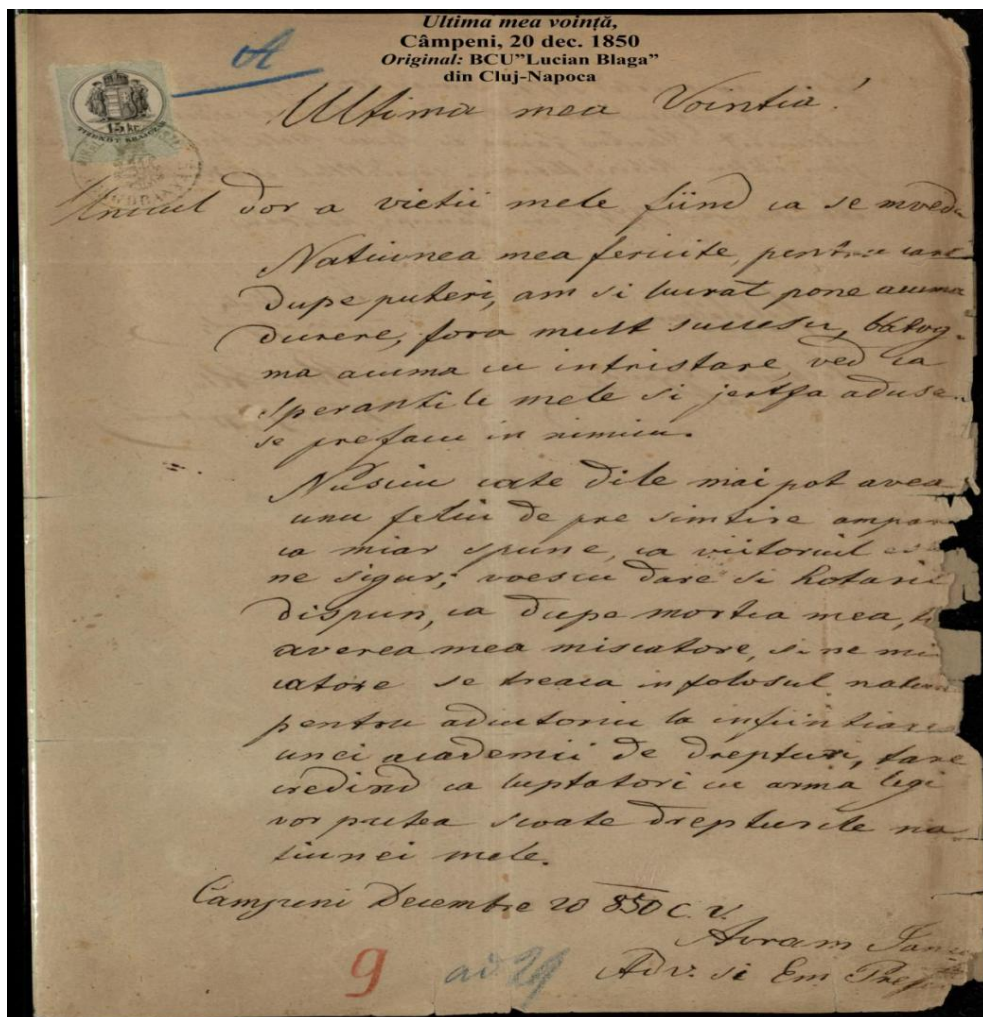 Ultima mea voință,
Câmpeni, 20 dec. 1850
Original: BCU"Lucian Blaga"
din Cluj-Napoca
A
15 kr.
Ultima mea Vointia!
Unicul dor a vietii mele fiind ca se mved
Natiunea mea fericite, pentru care
dupe puteri, am si lucrat pone acuma
durere, fora mult sucsesu,
ma acuma cu intristare, ved ca
sperantile mele si jertfa aduse
se prefacu in nimicu.
Nusciu cate dile mai pot avea
unu feliu de pre simtire ampar
ca miar spune, ca viitoriul es
ne sigur; voescu dare si hotarit
dispun, ca dupe mortea mea, t
averea mea miscatore, si ne mi
catore se treaca in folosul natiun
pentru adiutoriu la infiintiare
unei academii de drepturi, tare
credind ca luptatori cu arma legi
vor putea scoate drepturile na
tiunei mele.
Campeni Decembre 20 850 C. V.
Avram Ianc
Adv. si Em Pref
9 ad 29